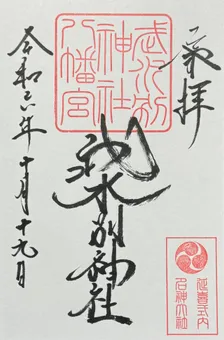 奉拝
武水別
神社
八幡宮
武水別神社
延喜式内
名神大社
令和六年十月十九日